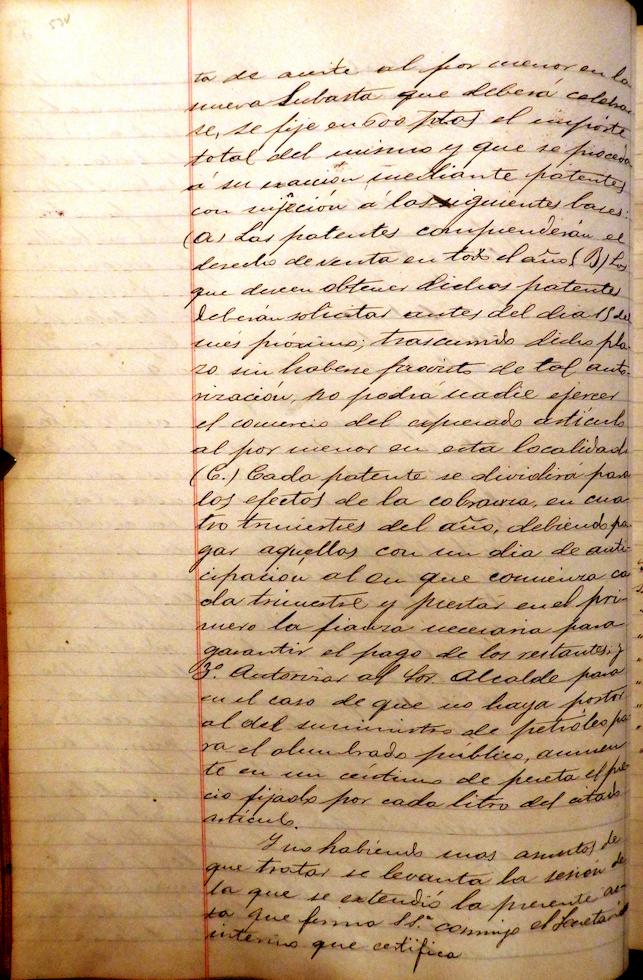 ta de aceite al por menor en la
nueva Subasta que deberá celebrar
se, se fije en 600 ptas el importe
total del mismo y que se proceda
á su exacción, mediante patentes
con sujeción á las siguientes bases:
(A) Las patentes comprenderán el
derecho de venta en todo el año. (B) Los
que deseen obtener dichas patentes
deberán solicitar antes del dia 15 del
més próximo; trascurrido dicho pla
zo sin haberse provisto de tal auto
rización, no podrá nadie ejercer
el comercio del expresado artículo
al por menor en esta localidad.
(C.) Cada patente se dividirá para
los efectos de la cobranza, en cua
tro trimestres del año, debiendo pa
gar aquellos con un dia de anti
cipación al en que comienza ca
da trimestre y prestar en el pri
mero la fianza necesaria para
garantir el pago de los restantes, y
3º Autorizar al Sor. Alcalde para
en el caso de que no haya postor
al del suministro de petróleo pa
ra el alumbrado público, aumen
te en un céntimo de peseta el pre
cio fijado por cada litro del citado
artículo.
Y no habiendo mas asuntos de
que tratar se levanta la sesión de
la que se extendió la presente ac
ta que firma SSª conmigo el Secretario
interino que certifica